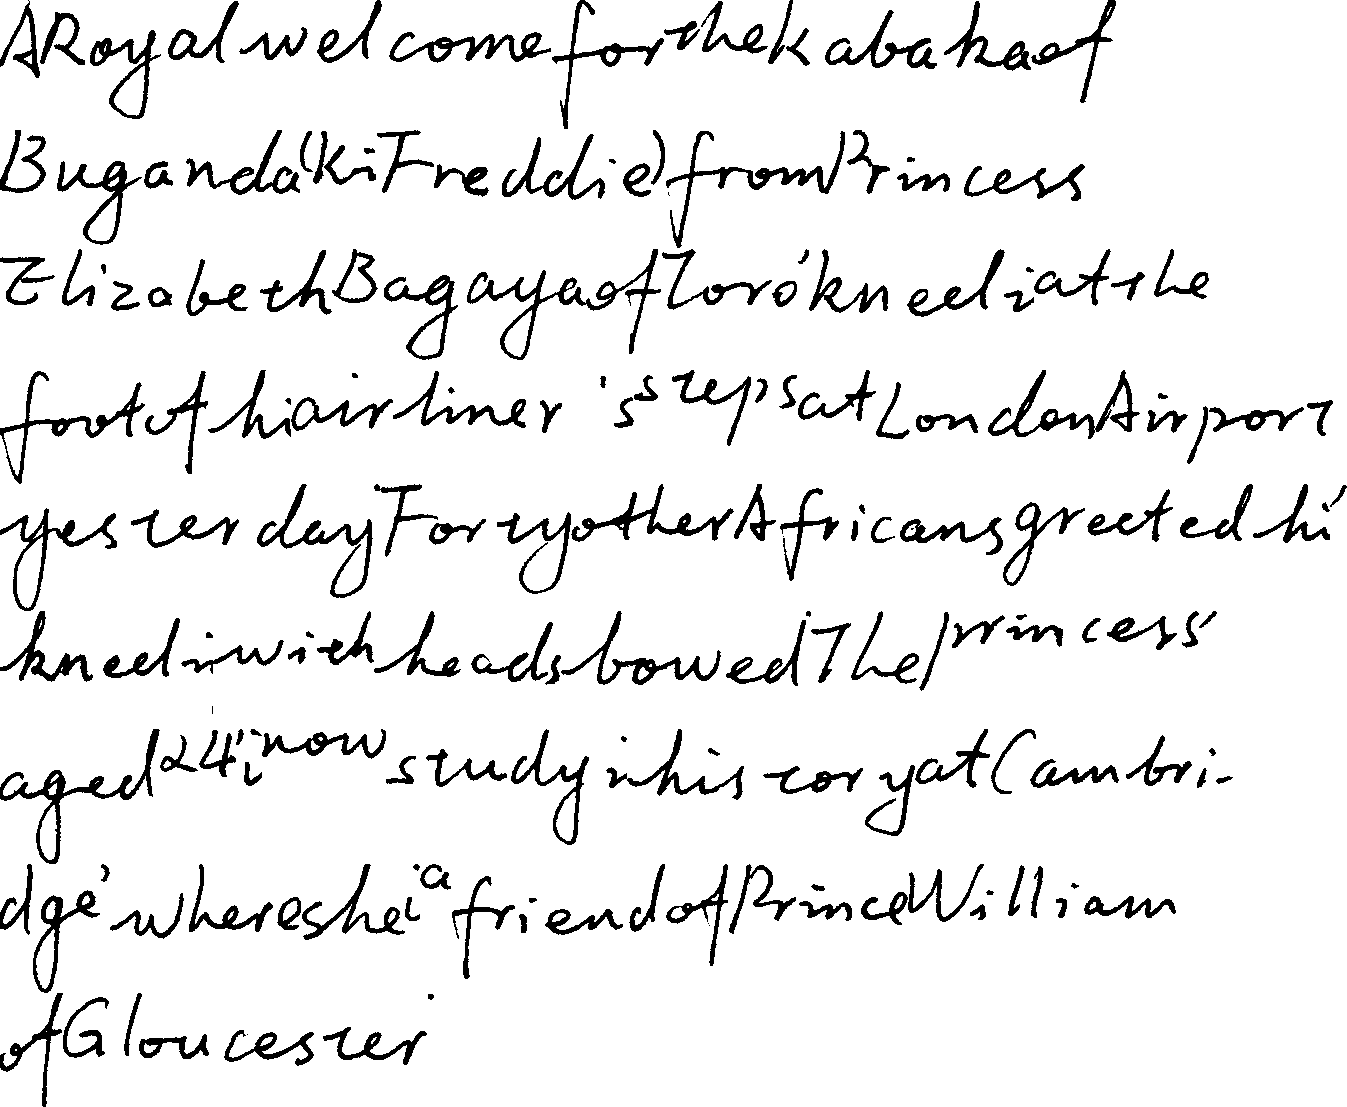 A Royal welcome for the Kabaka of
Buganda (Ki Freddie) from Princess
Elizabeth Bagaya of Toro' kneeli at the
foot of hi airliner 's steps at London Airport
yesterday Forty other Africans greeted hi'
kneeli with heads bowed The princess'
aged 24' i now study i history at Cambri-
dge' where she i a friend of Prince William
of Gloucester